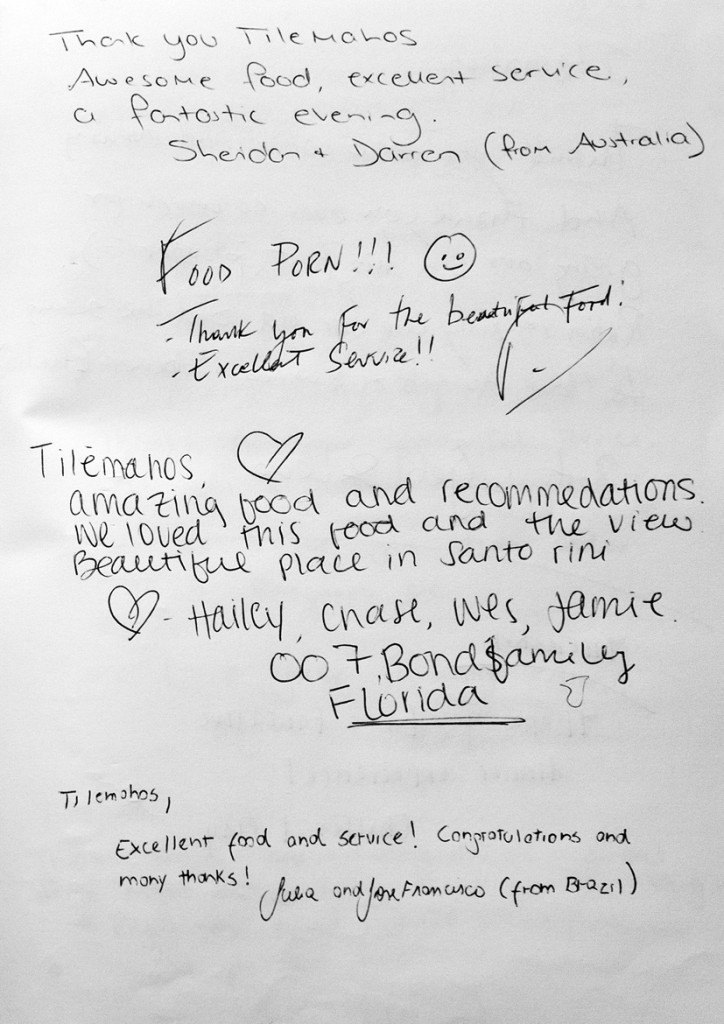 Thank you Tilemahos
Awesome food, excellent service,
a fantastic evening.
Sheridan + Darren (from Australia)
FOOD PORN!!!
- Thank you for the beautiful Food!
- Excellent Service!!
Tilemahos,
amazing food and recommedations.
We loved this food and the view
Beautiful place in Santorini
- Hailey, Chase, Wes, Jamie.
007, Bond family
Florida
Tilemahos,
Excellent food and service! Congratulations and
many thanks!
Julia and Jose Francisco (from Brazil)